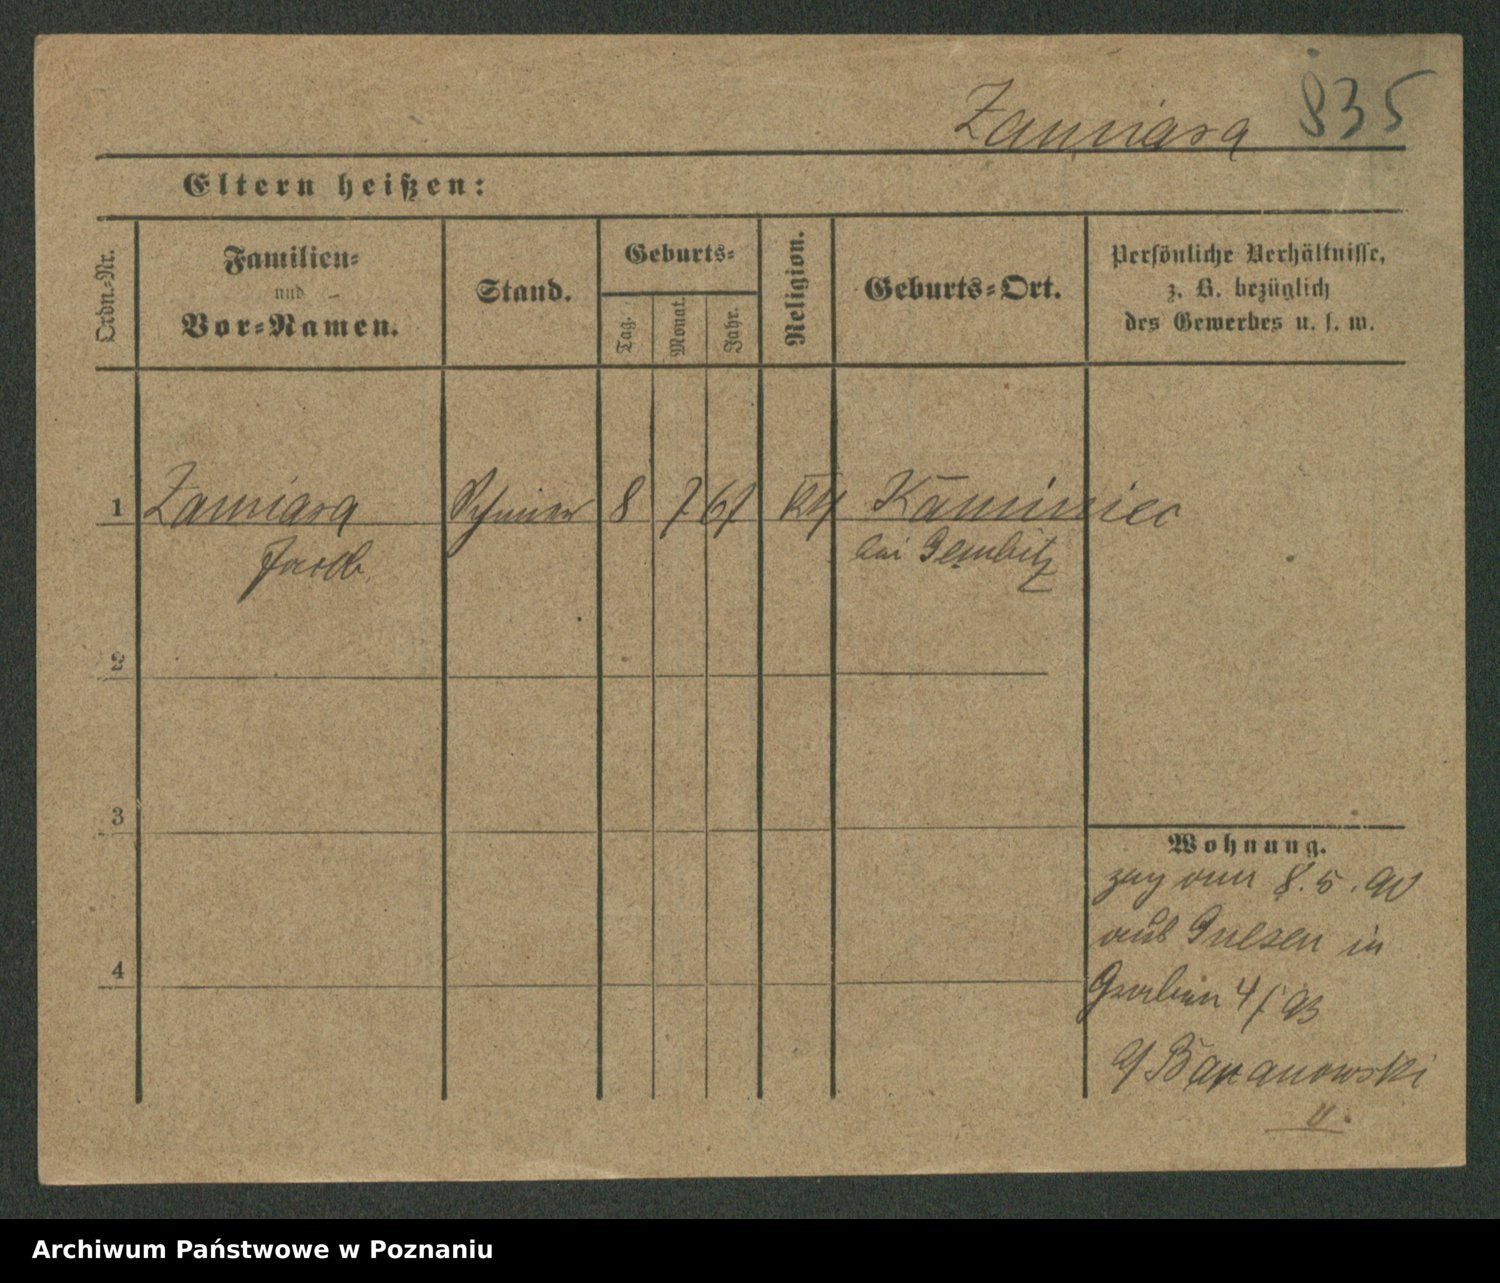 835
Zamiara
Eltern heißen:
Ordn.-Nr.
Familien-
und
Vor-Namen.
Stand.
Geburts-
Tag.
Monat.
Jahr.
Religion.
Geburts-Ort.
Persönliche Verhältnisse,
z. B. bezüglich
des Gewerbes u. s. w.
1 Zamiara 8 7 67 Kth Kaminiec
Jacob bei Gembitz
2
3
4
Wohnung.
zog von 8. 5. 90
aus Gnesen in
Graben 4/ 93
b/ Baranowski
Archiwum Państwowe w Poznaniu